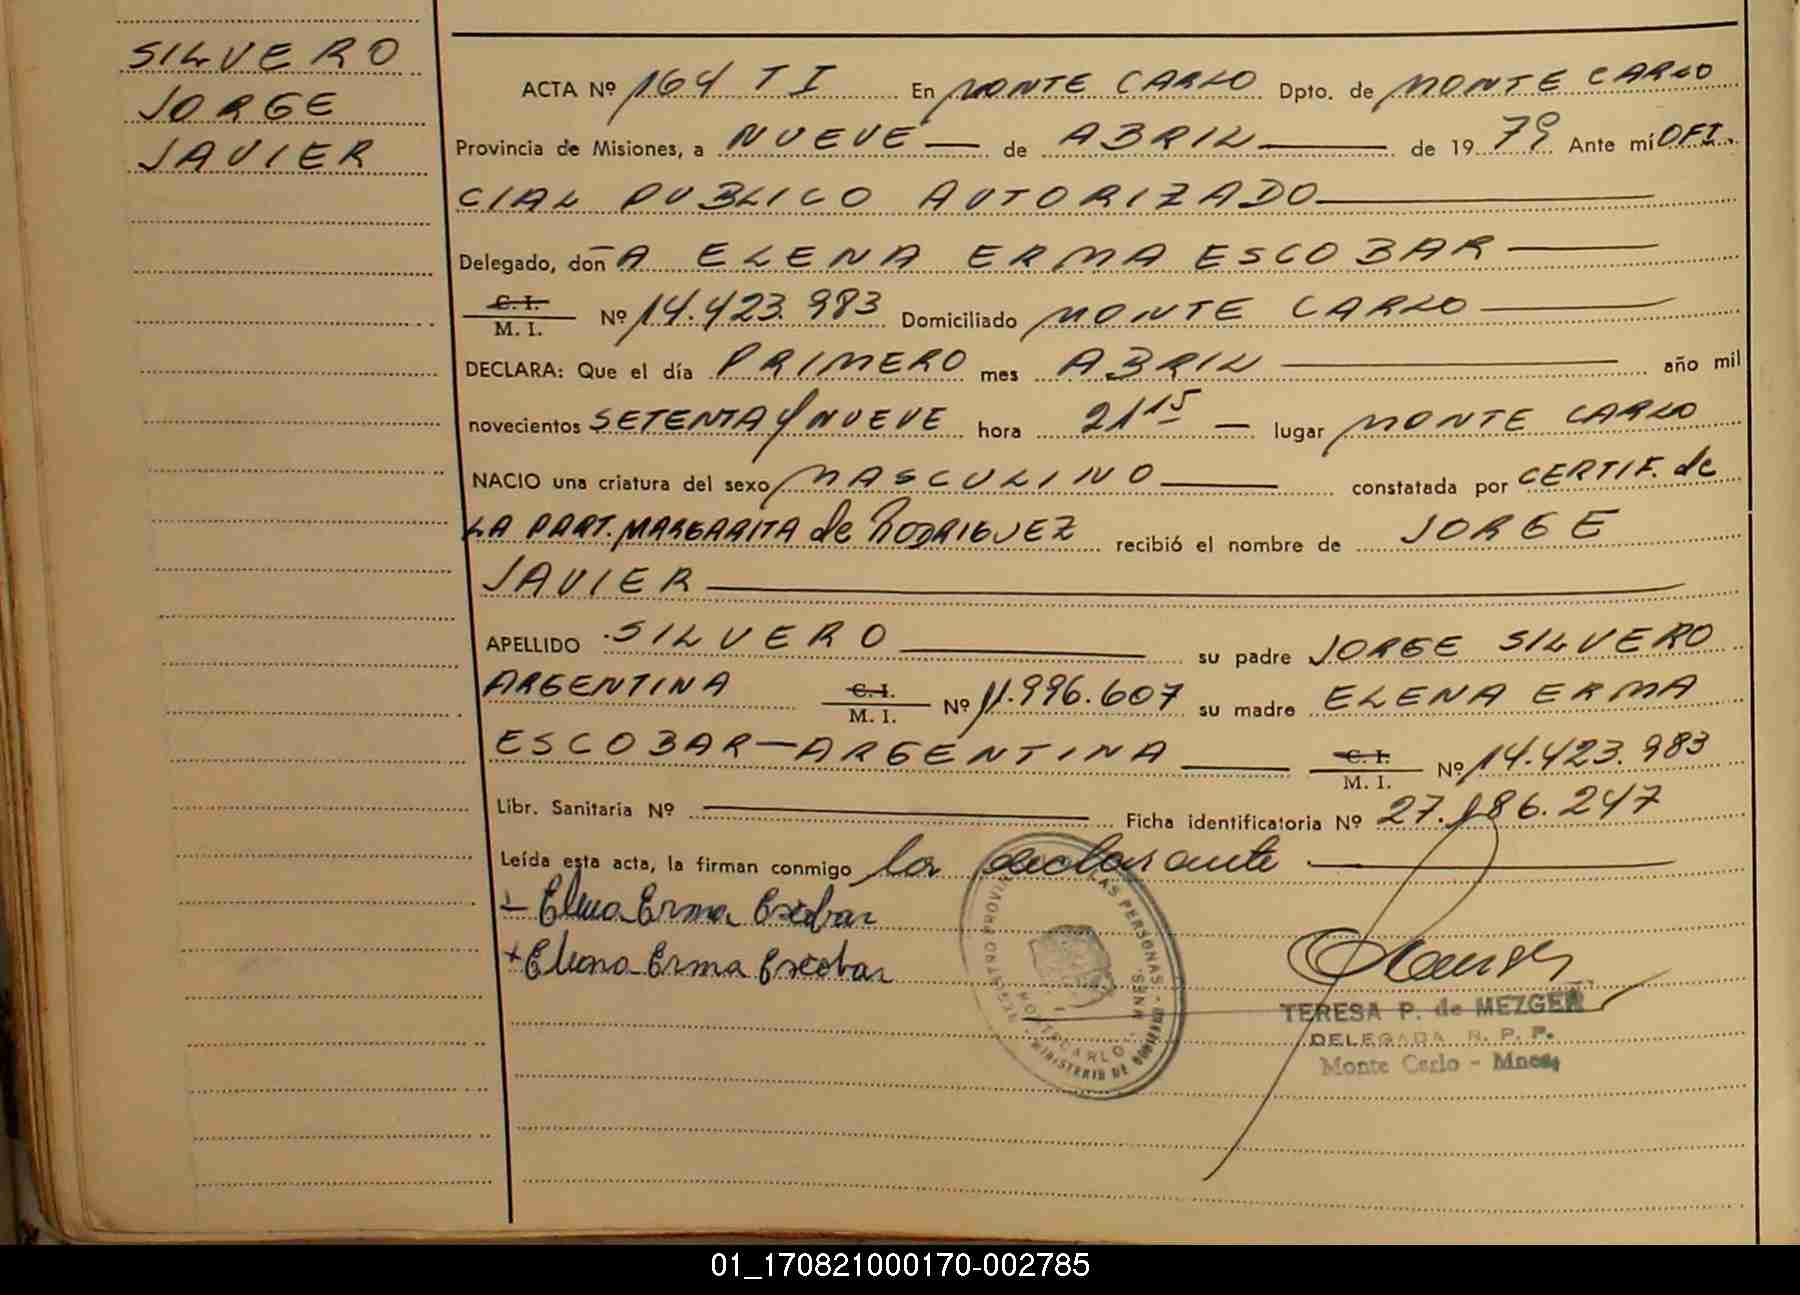 SILVERO
JORGE
JAVIER
ACTA Nº 164 T I En MONTE CARLO Dpto. de MONTE CARLO
Provincia de Misiones, a NUEVE — de ABRIL — de 1979 Ante mí OFI.
CIAL PUBLICO AUTORIZADO —
Delegado, don A ELENA ERMA ESCOBAR —
C. I.
M. I. Nº 14.423.983 Domiciliado MONTE CARLO —
DECLARA: Que el día PRIMERO mes ABRIL — año mil
novecientos SETENTA y NUEVE hora 21 15 — lugar MONTE CARLO
NACIO una criatura del sexo MASCULINO — constatada por CERTIF. de
LA PART. MARGARITA de RODRIGUEZ recibió el nombre de JORGE
JAVIER —
APELLIDO SILVERO — su padre JORGE SILVERO
ARGENTINA C. I.
M. I. Nº 11.996.607 su madre ELENA ERMA
ESCOBAR — ARGENTINA — C. I.
M. I. Nº 14.423.983
Libr. Sanitaria Nº — Ficha identificatoria Nº 27.186.247
Leída esta acta, la firman conmigo la declarante —
— Elena Erma Escobar
+ Elena Erma Escobar
REGISTRO PROVIN LAS PERSONAS - MINISTERIO DE GOBIERNO
MONTECARLO - MNES.
TERESA P. de MEZGER
DELEGADA R. P. P.
Monte Carlo - Mnes.
01_170821000170-002785